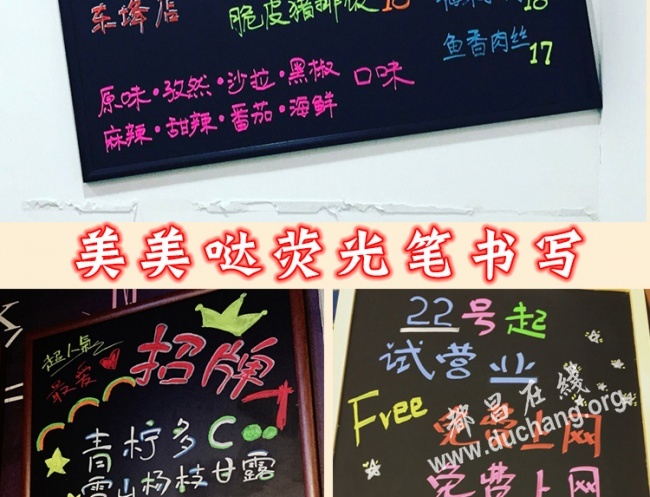 东绛店
脆皮豬排饭 16
18
鱼香肉丝 17
原味·孜然·沙拉·黑椒 口味
麻辣·甜辣·番茄·海鲜
美美哒荧光笔书写
超人氣
最爱
招牌
青柠多C
雪山杨枝甘露
22号起
试营业
Free
免费上网
免费上网
都昌在綫
www.duchang.org